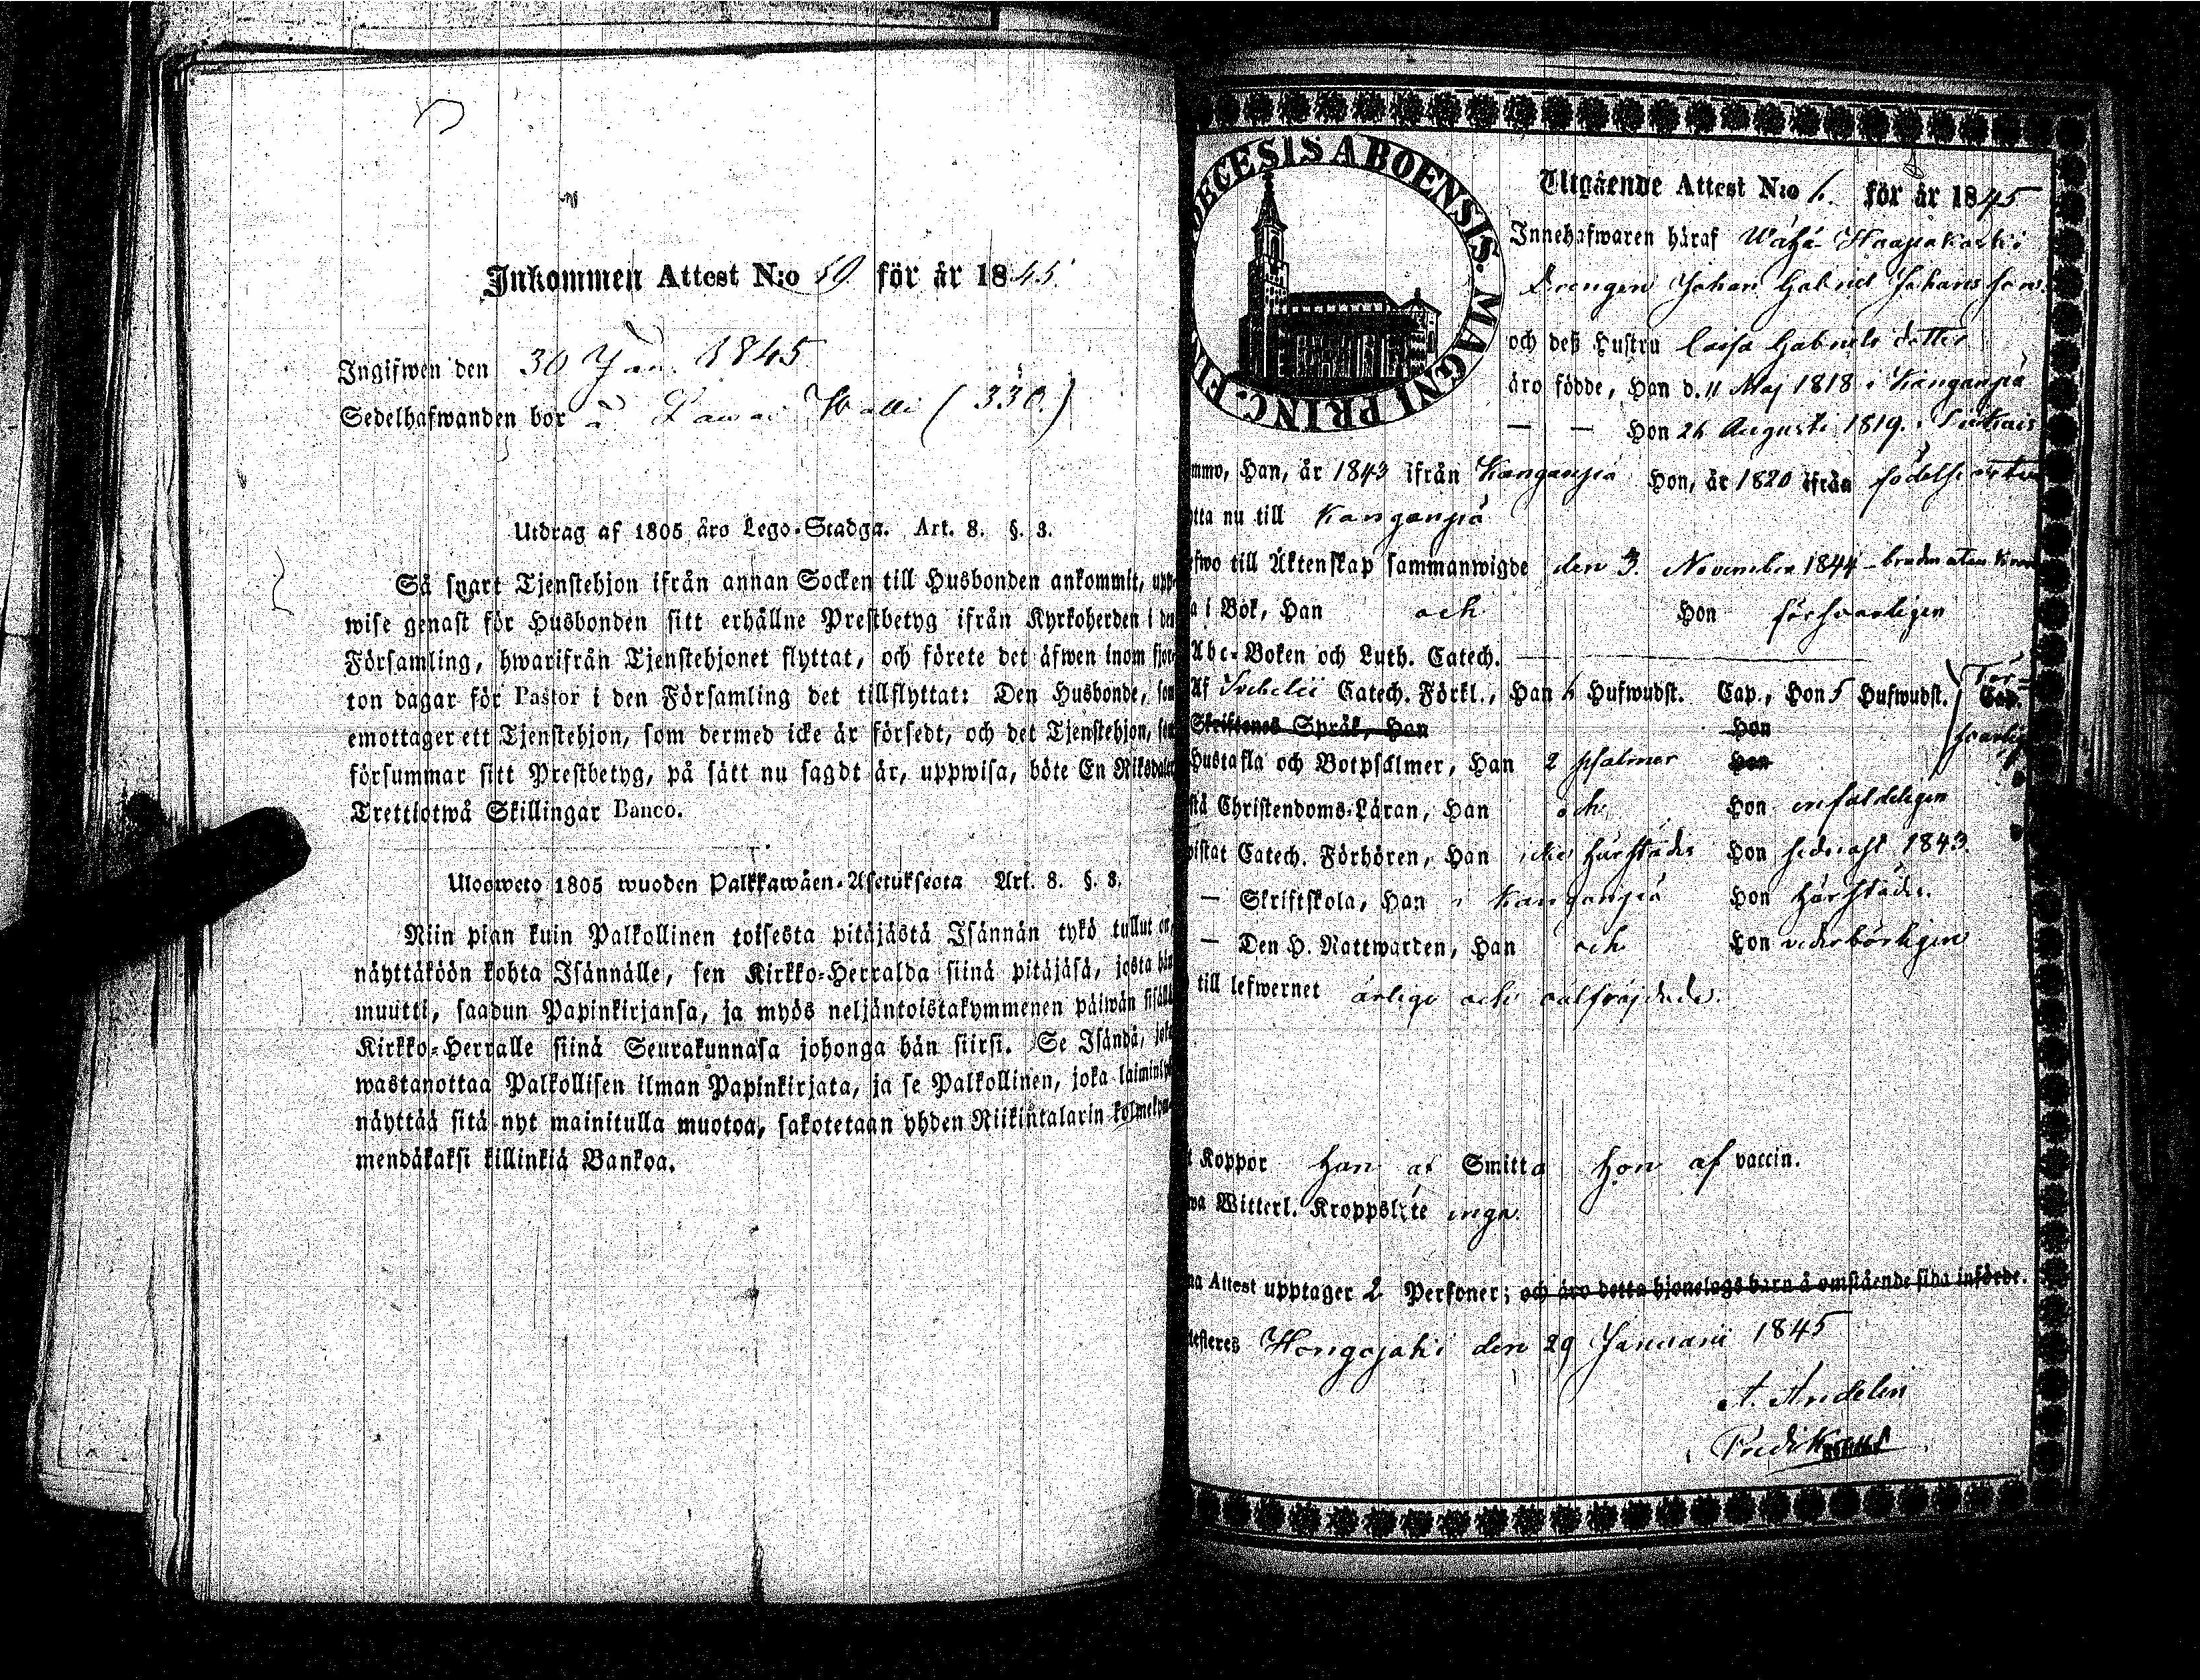 Inkommen Attest N:o 59 för år 1845.
Ingifwen den 30 Jan. 1845
Sedelhafwanden bor å (330.)
Utdrag af 1805 års Lego-Stadga. Art. 8. §. 3.
Så snart Tjenstehjon ifrån annan Socken till Husbonden ankommit, upp-
wise genast för Husbonden sitt erhållne Prestbetyg ifrån Kyrkoherden i den
Församling, hwarifrån Tjenstehjonet flyttat, och förete det äfwen inom fjor-
ton dagar för Pastor i den Församling det tillflyttat: Den Husbonde, som
emottager ett Tjenstehjon, som dermed icke är försedt, och det Tjenstehjon, som
försummar sitt Prestbetyg, på sätt nu sagdt är, uppwisa, böte En Riksdaler
Trettiotwå Skillingar Banco.
Ulosweto 1805 wuoden Palkkawäen-Asetuksesta Art. 8. §. 3.
Niin pian kuin Palkollinen toisesta pitäjästä Isännän tykö tullut on,
näyttäköön kohta Isännälle, sen Kirkko-Herralda siinä pitäjäsä, josta hän
muutti, saadun Papinkirjansa, ja myös neljäntoistakymmenen päiwän sisällä
Kirkko-Herralle siinä Seurakunnasa johonga hän siirsi. Se Isändä, joka
wastanottaa Palkollisen ilman Papinkirjata, ja se Palkollinen, joka
näyttää sitä nyt mainitulla muotoa, sakotetaan yhden Riikintalarin kolmekym-
mendäkaksi killinkiä Bankoa.
DIOECESIS ABOENSIS. MAGNI PRINC. FIN
Utgående Attest N:o 6. för år 1845
Innehafwaren häraf Wähä Haapakoski
Drengen Johan Gabriel Johansson
och deß Hustru Caisa Gabriels dotter
äro födde, Han d. 11 Maj 1818 i Kangan­pää
— — Hon 26 Augusti 1819. i Siikais
mmo, Han, år 1843 ifrån Kanganpää Hon, år 1820 ifrån födelse orten
tta nu till Kanganpää
fwo till Äktenskap sammanwigde den 3. Novembris 1844 – bruden utan
a i Bok, Han och Hon försvarligen
Abc-Boken och Luth. Catech.
Af Svebelii Catech. Förkl., Han 6 Hufwudst. Cap., Hon 5 Hufwudst. Cap. För-
Skriftenes Språk, Han Hon svarlig
Hustafla och Botpsalmer, Han 2 psalmer Hon
stå Christendoms-Läran, Han och Hon enfaldeligen
wistat Catech. Förhören, Han icke härstädes Hon sednast 1843.
— Skriftskola, Han i Kanganpää Hon härstädes.
— Den H. Nattwarden, Han och Hon vederbörligen
till lefwernet ärlige och välfräjdade.
t Koppor Han af Smitta Hon af vaccin.
wa Witterl. Kroppslyte inga.
na Attest upptager 2 Personer; och äro detta hjonelags barn å omstående sida införde.
testeres Hongojoki den 29 Januarii 1845
A. Andelin